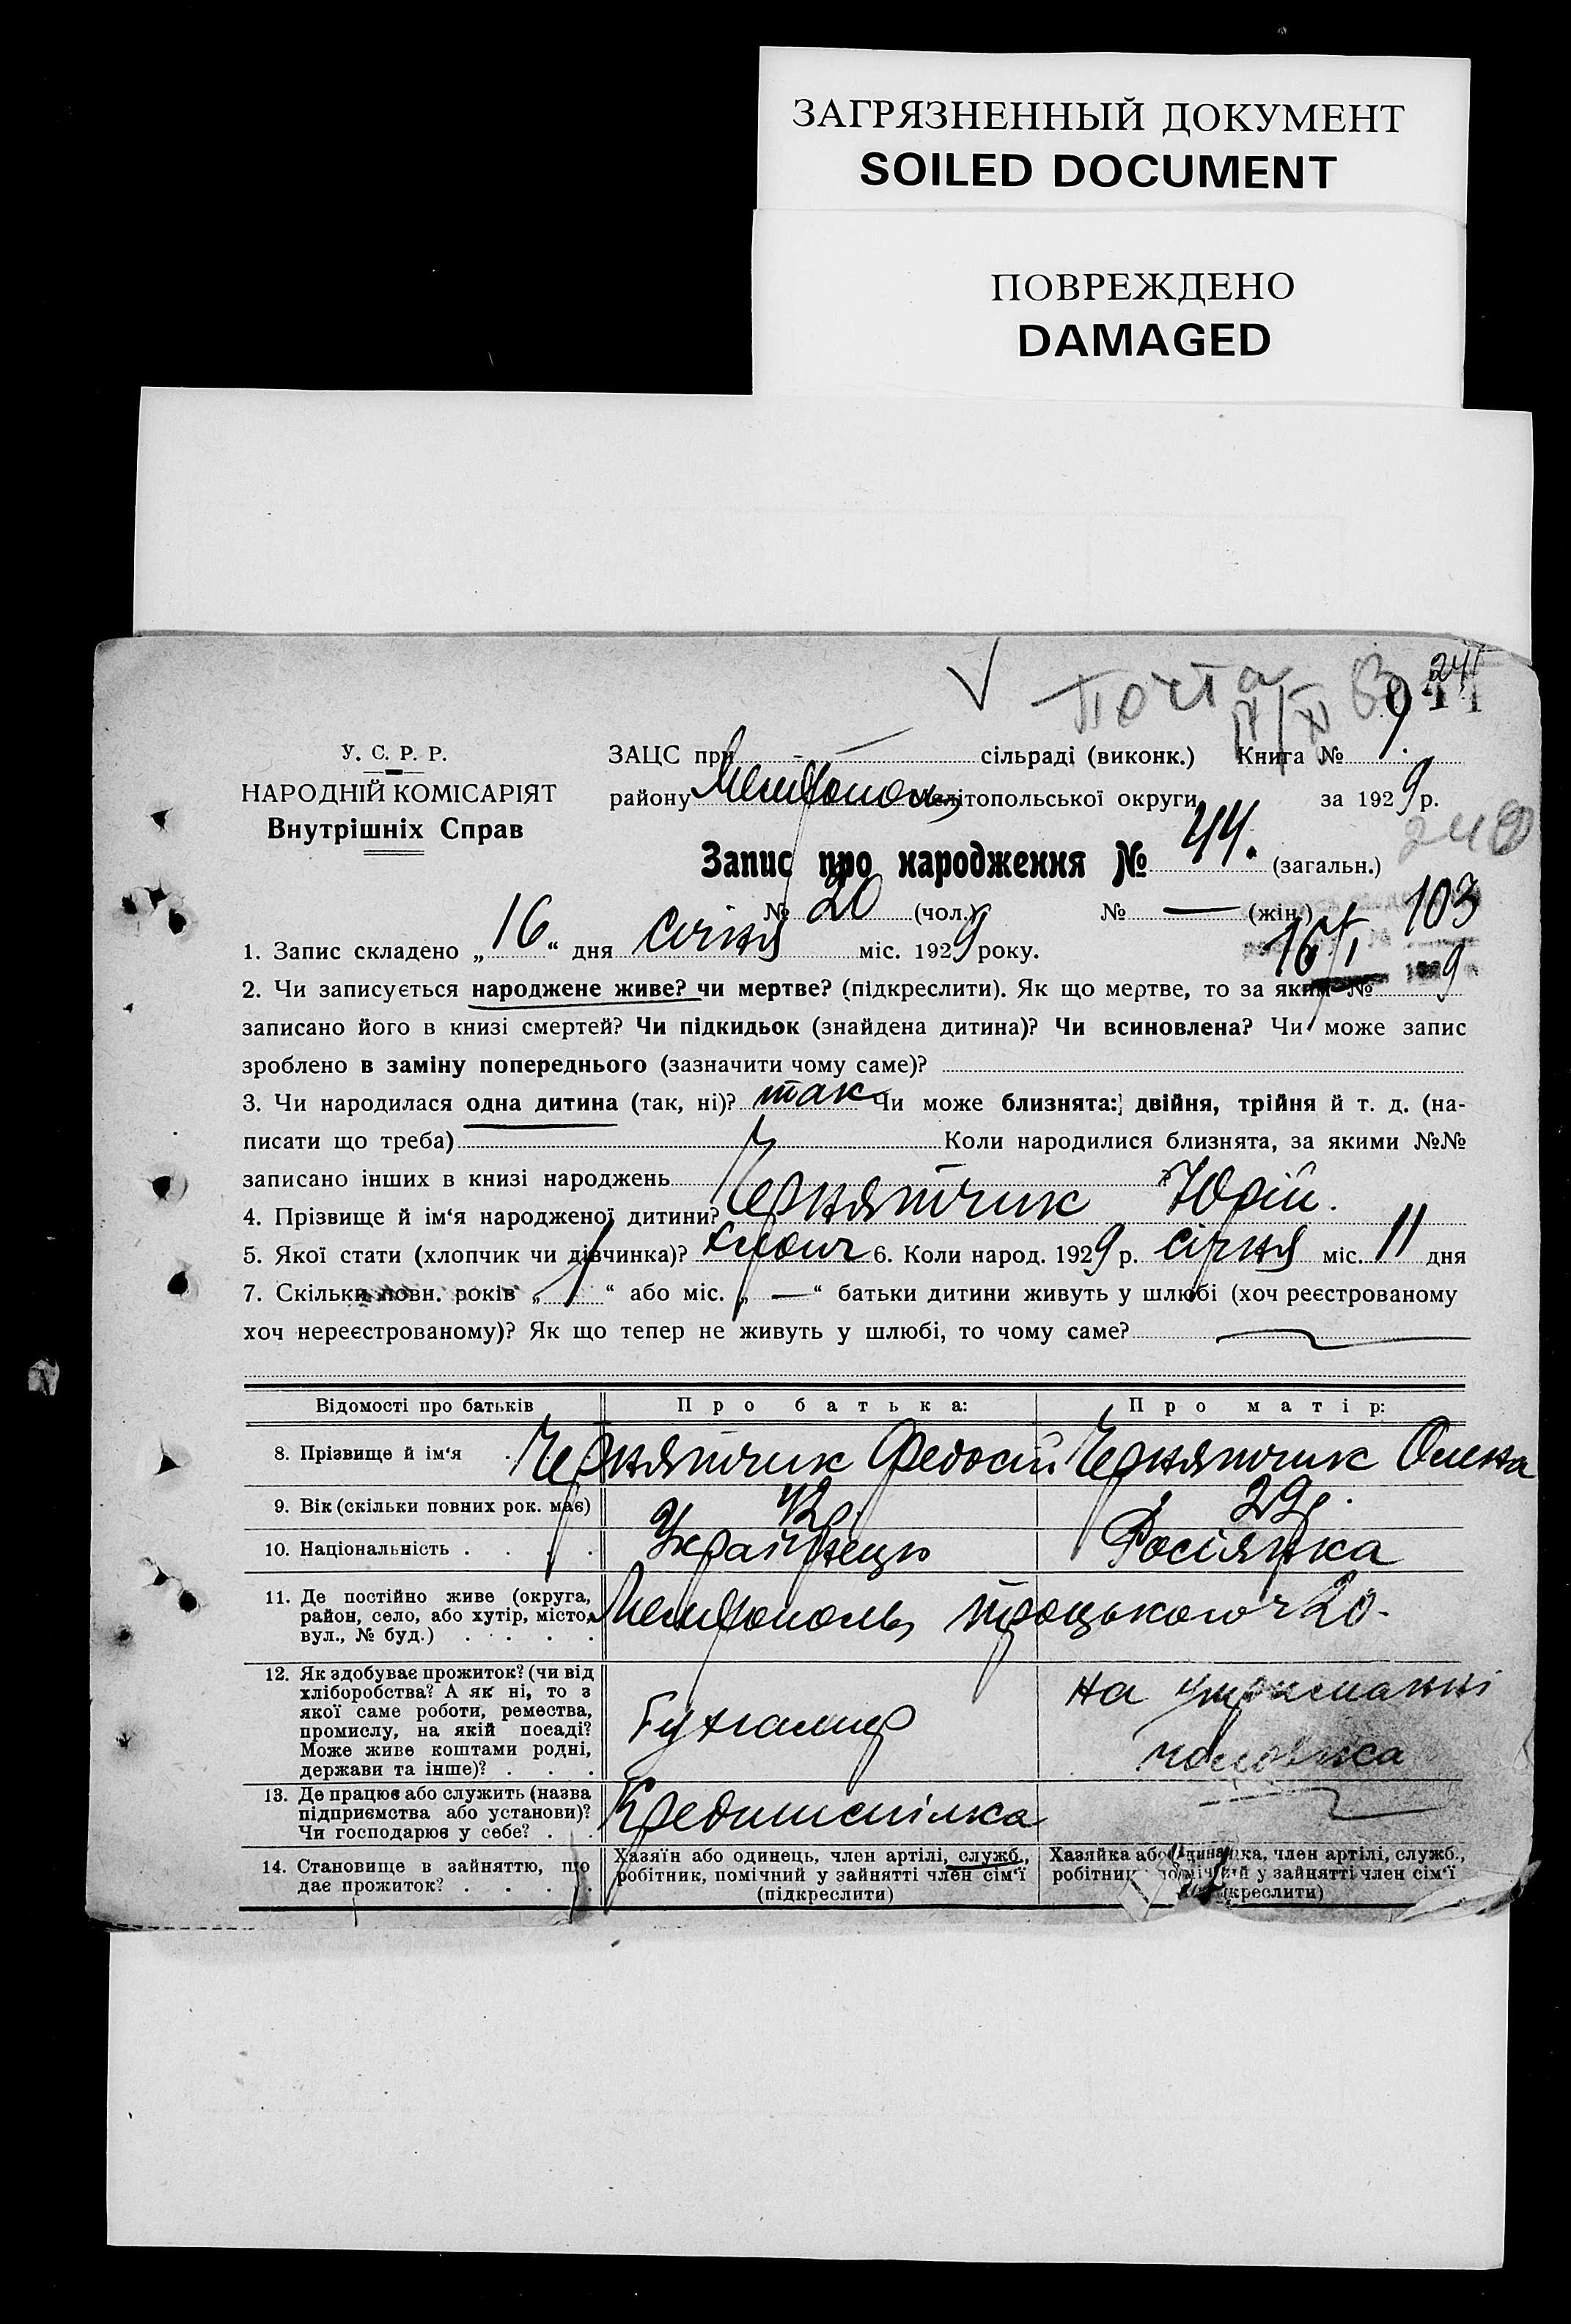 ЗАГРЯЗНЕННЫЙ ДОКУМЕНТ
SOILED DOCUMENT
ПОВРЕЖДЕНО
DAMAGED
Почта
241
У. С. Р. Р.
НАРОДНІЙ КОМІСАРІЯТ
Внутрішніх Справ
ЗАЦС при - сільраді (виконк.) Книга № 1.
району Мелітополь Мелітопольської округи за 1929 р.
Запис про народження № 44. (загальн.)
№ 20 (чол.) № — (жін.)
103
16/I 9
1. Запис складено „16“ дня січня міс. 1929 року.
2. Чи записується народжене живе? чи мертве? (підкреслити). Як що мертве, то за яким №
записано його в книзі смертей? Чи підкидьок (знайдена дитина)? Чи всиновлена? Чи може запис
зроблено в заміну попереднього (зазначити чому саме)?
3. Чи народилася одна дитина (так, ні)? так Чи може близнята: двійня, трійня й т. д. (на-
писати що треба) Коли народилися близнята, за якими №№
записано інших в книзі народжень ?
4. Прізвище й ім‘я народженої дитини? Чернятчик Юрій.
5. Якої стати (хлопчик чи дівчинка)? хлопч 6. Коли народ. 1929 р. січня міс. 11 дня
7. Скільки повн. років „1“ або міс. „—“ батьки дитини живуть у шлюбі (хоч реєстрованому
хоч нереєстрованому)? Як що тепер не живуть у шлюбі, то чому саме?
Відомості про батьків Про батька: Про матір:
8. Прізвище й ім‘я Чернятчик Федосій Чернятчик Олена
9. Вік (скільки повних рок. має) 42р. 29р.
10. Національність . . . . Українець Росіянка
11. Де постійно живе (округа,
район, село, або хутір, місто,
вул., № буд.) . . . . Мелітополь Троцького ч 20.
12. Як здобуває прожиток? (чи від
хліборобства? А як ні, то з
якої саме роботи, ремества,
промислу, на якій посаді?
Може живе коштами родні,
держави та інше)? . . .
Бухгалтер
на утриманні
чоловіка
13. Де працює або служить (назва
підприємства або установи)?
Чи господарює у себе? . . Кредитспілка
14. Становище в зайняттю, що
дає прожиток? . . . .
Хазяїн або одинець, член артілі, служб.,
робітник, помічний у зайнятті член сім‘ї
(підкреслити)
Хазяйка або одиначка, член артілі, служб.,
робітник помічний у зайнятті член сім‘ї
(підкреслити)